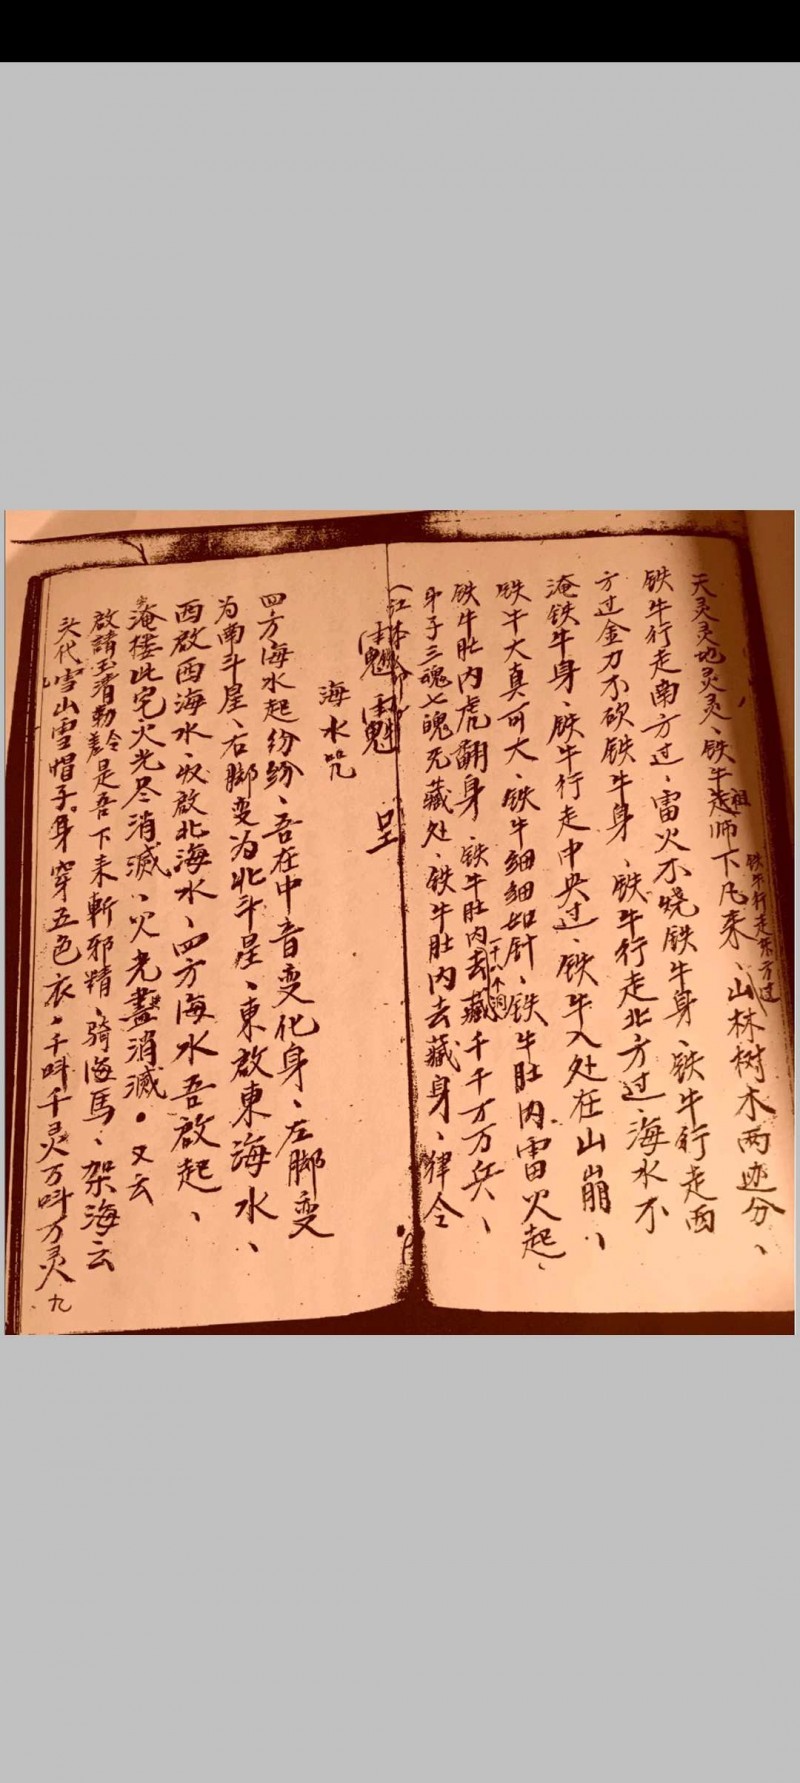 天灵灵地灵灵、铁牛祖师下凡来、山林树木两边分、
铁牛行走东方过
铁牛行走南方过、雷火不烧铁牛身、铁牛行走西
方过金刀不砍铁牛身、铁牛行走北方过、海水不
淹铁牛身、铁牛行走中央过、铁牛入处在山崩、
铁牛大真可大、铁牛细细如针、铁牛肚内雷火起、
铁牛肚内虎翻身、铁牛肚内去藏千千万万兵、
十八个洞
弟子三魂七魄无藏处、铁牛肚内去藏身、律令
海水咒
四方海水起纷纷、吾在中音变化身、左脚变
为南斗星、右脚变为北斗星、東啟東海水、
西啟西海水、收啟北海水、四方海水吾啟起、
淹楼此宅火光尽消滅、火光盡消滅。又云
啟請玉清勅令是吾下来斬邪精、骑海馬、架海云
头代雪山雪帽子。身穿五色衣。千叫千灵万叫万灵
九